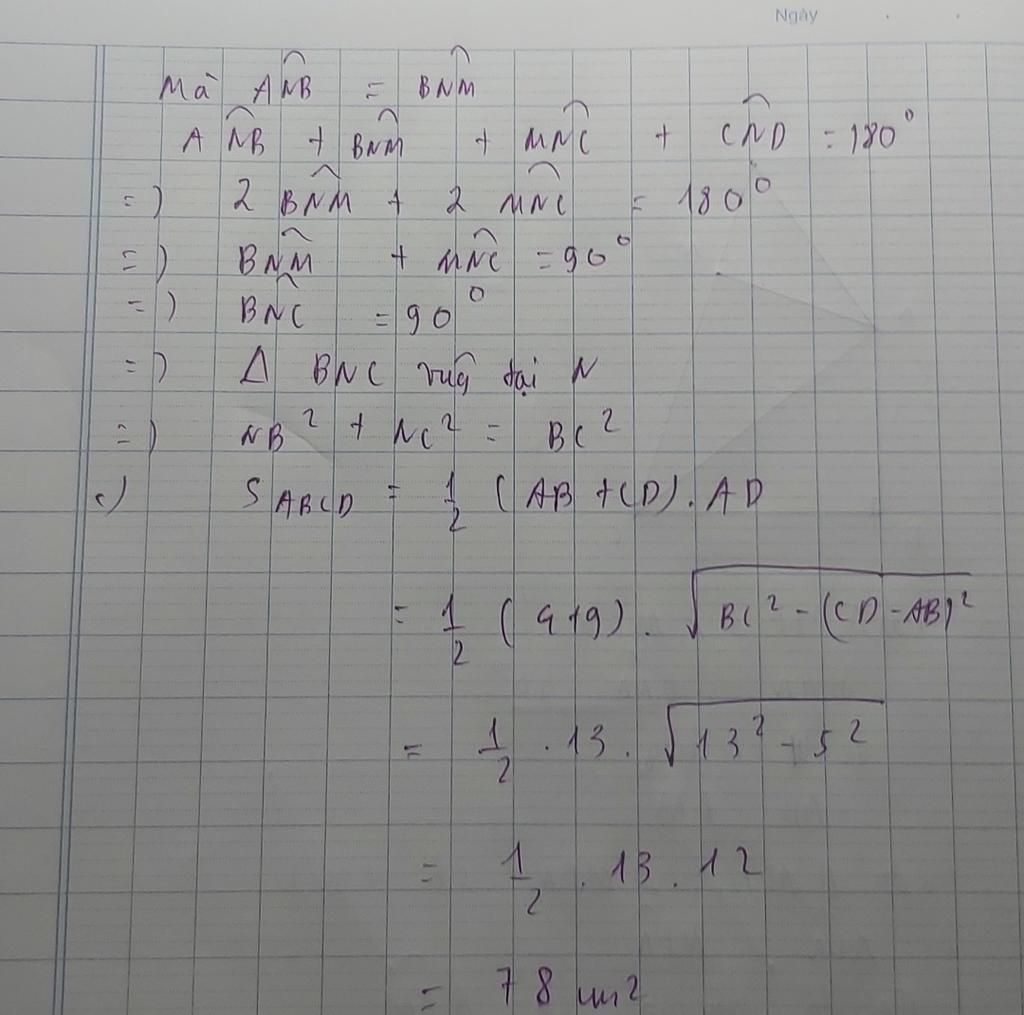 Ngày
Mà AN̂B = BN̂M
AN̂B + BN̂M + MN̂C + CN̂D = 180°
=) 2 BN̂M + 2 MN̂C = 180°
=) BN̂M + MN̂C = 90°
=) BN̂C = 90°
=) Δ BNC tại N
=) NB² + NC² = BC²
c) S ABCD = 1/2 (AB + CD). AD
= 1/2 (4+9). √(BC² - (CD - AB)²
= 1/2 . 13. √(13² - 5²)
= 1/2 . 13 . 12
= 78 cm²